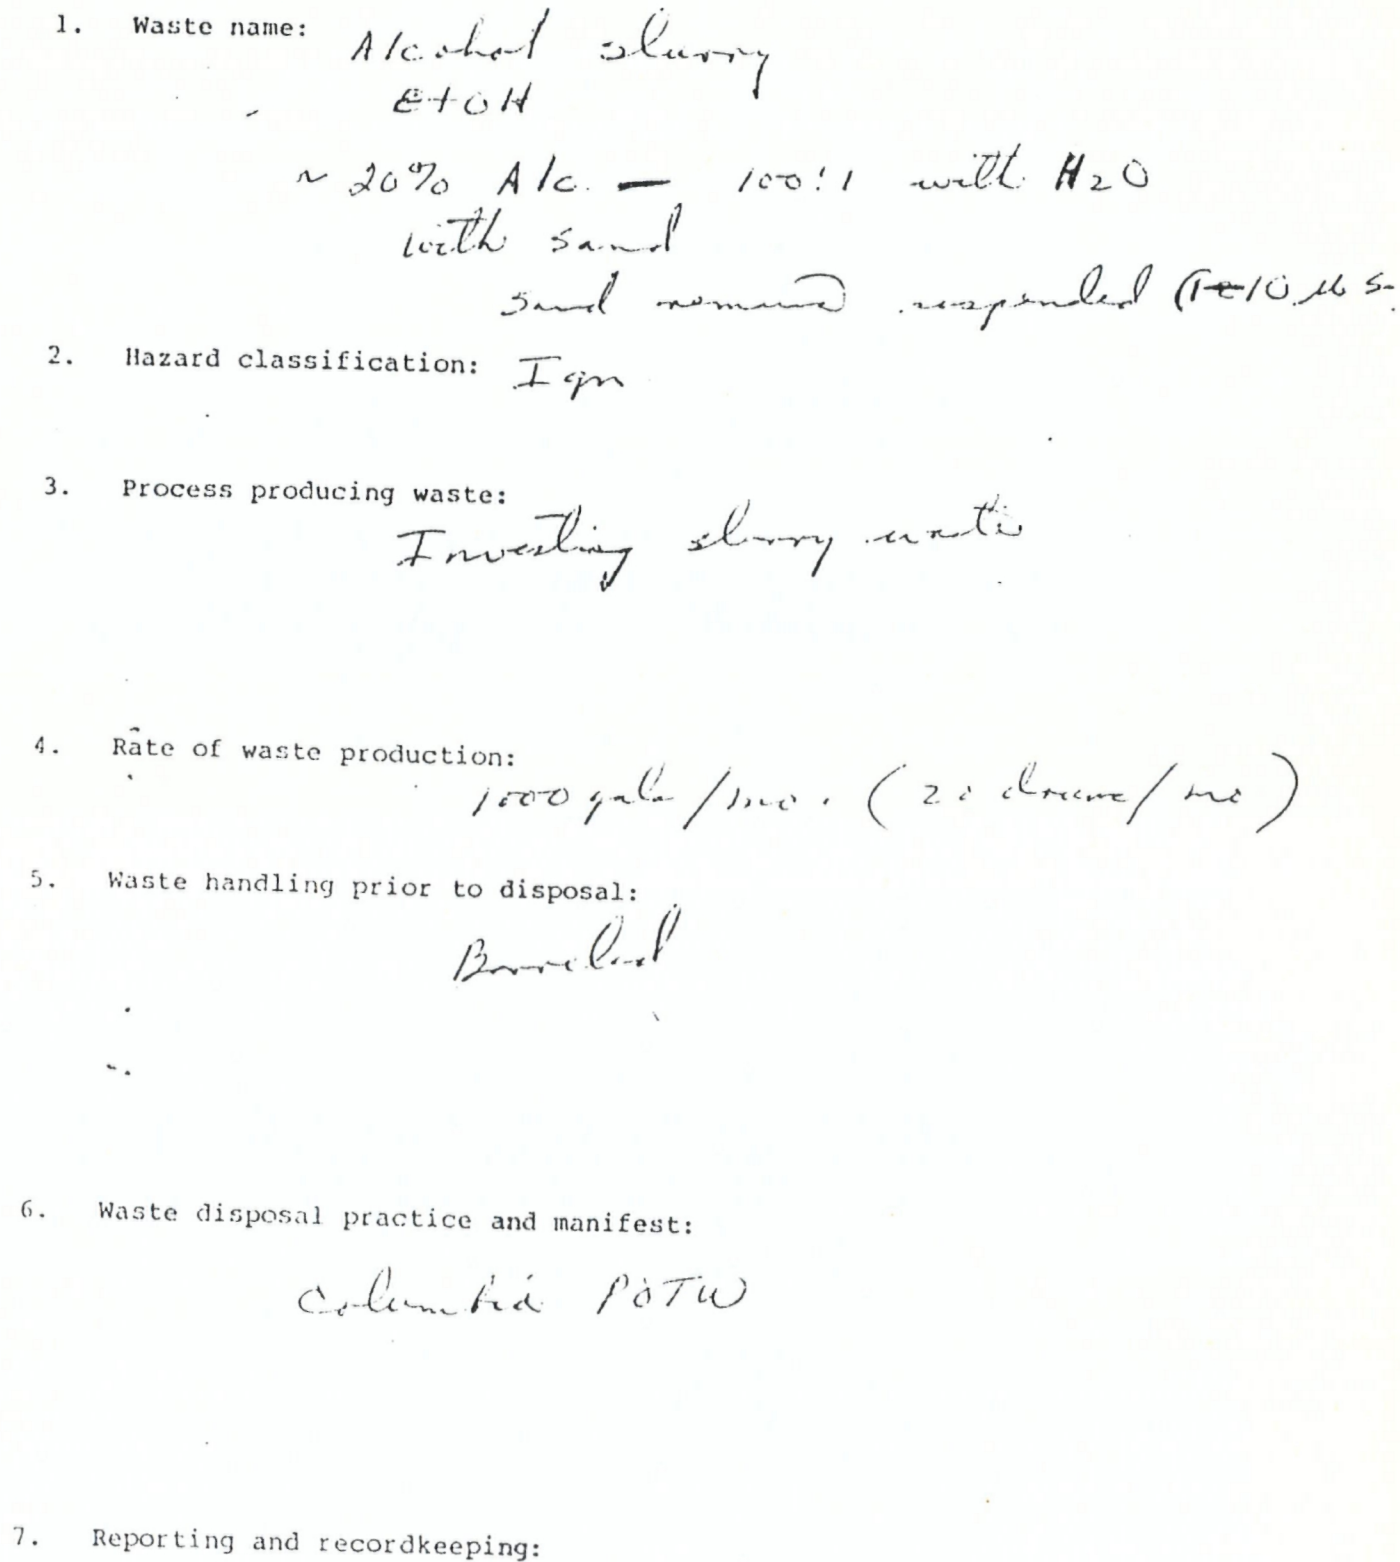 1. Waste name: Alcohol slurry
EtOH
~ 20% Alc. — 100:1 with H2O
with sand
sand remains suspended
2. Hazard classification: Ign
3. Process producing waste:
Investing slurry waste
4. Rate of waste production:
1000 gals/mo. (20 drums/mo)
5. Waste handling prior to disposal:
Barreled
6. Waste disposal practice and manifest:
Columbia POTW
7. Reporting and recordkeeping: